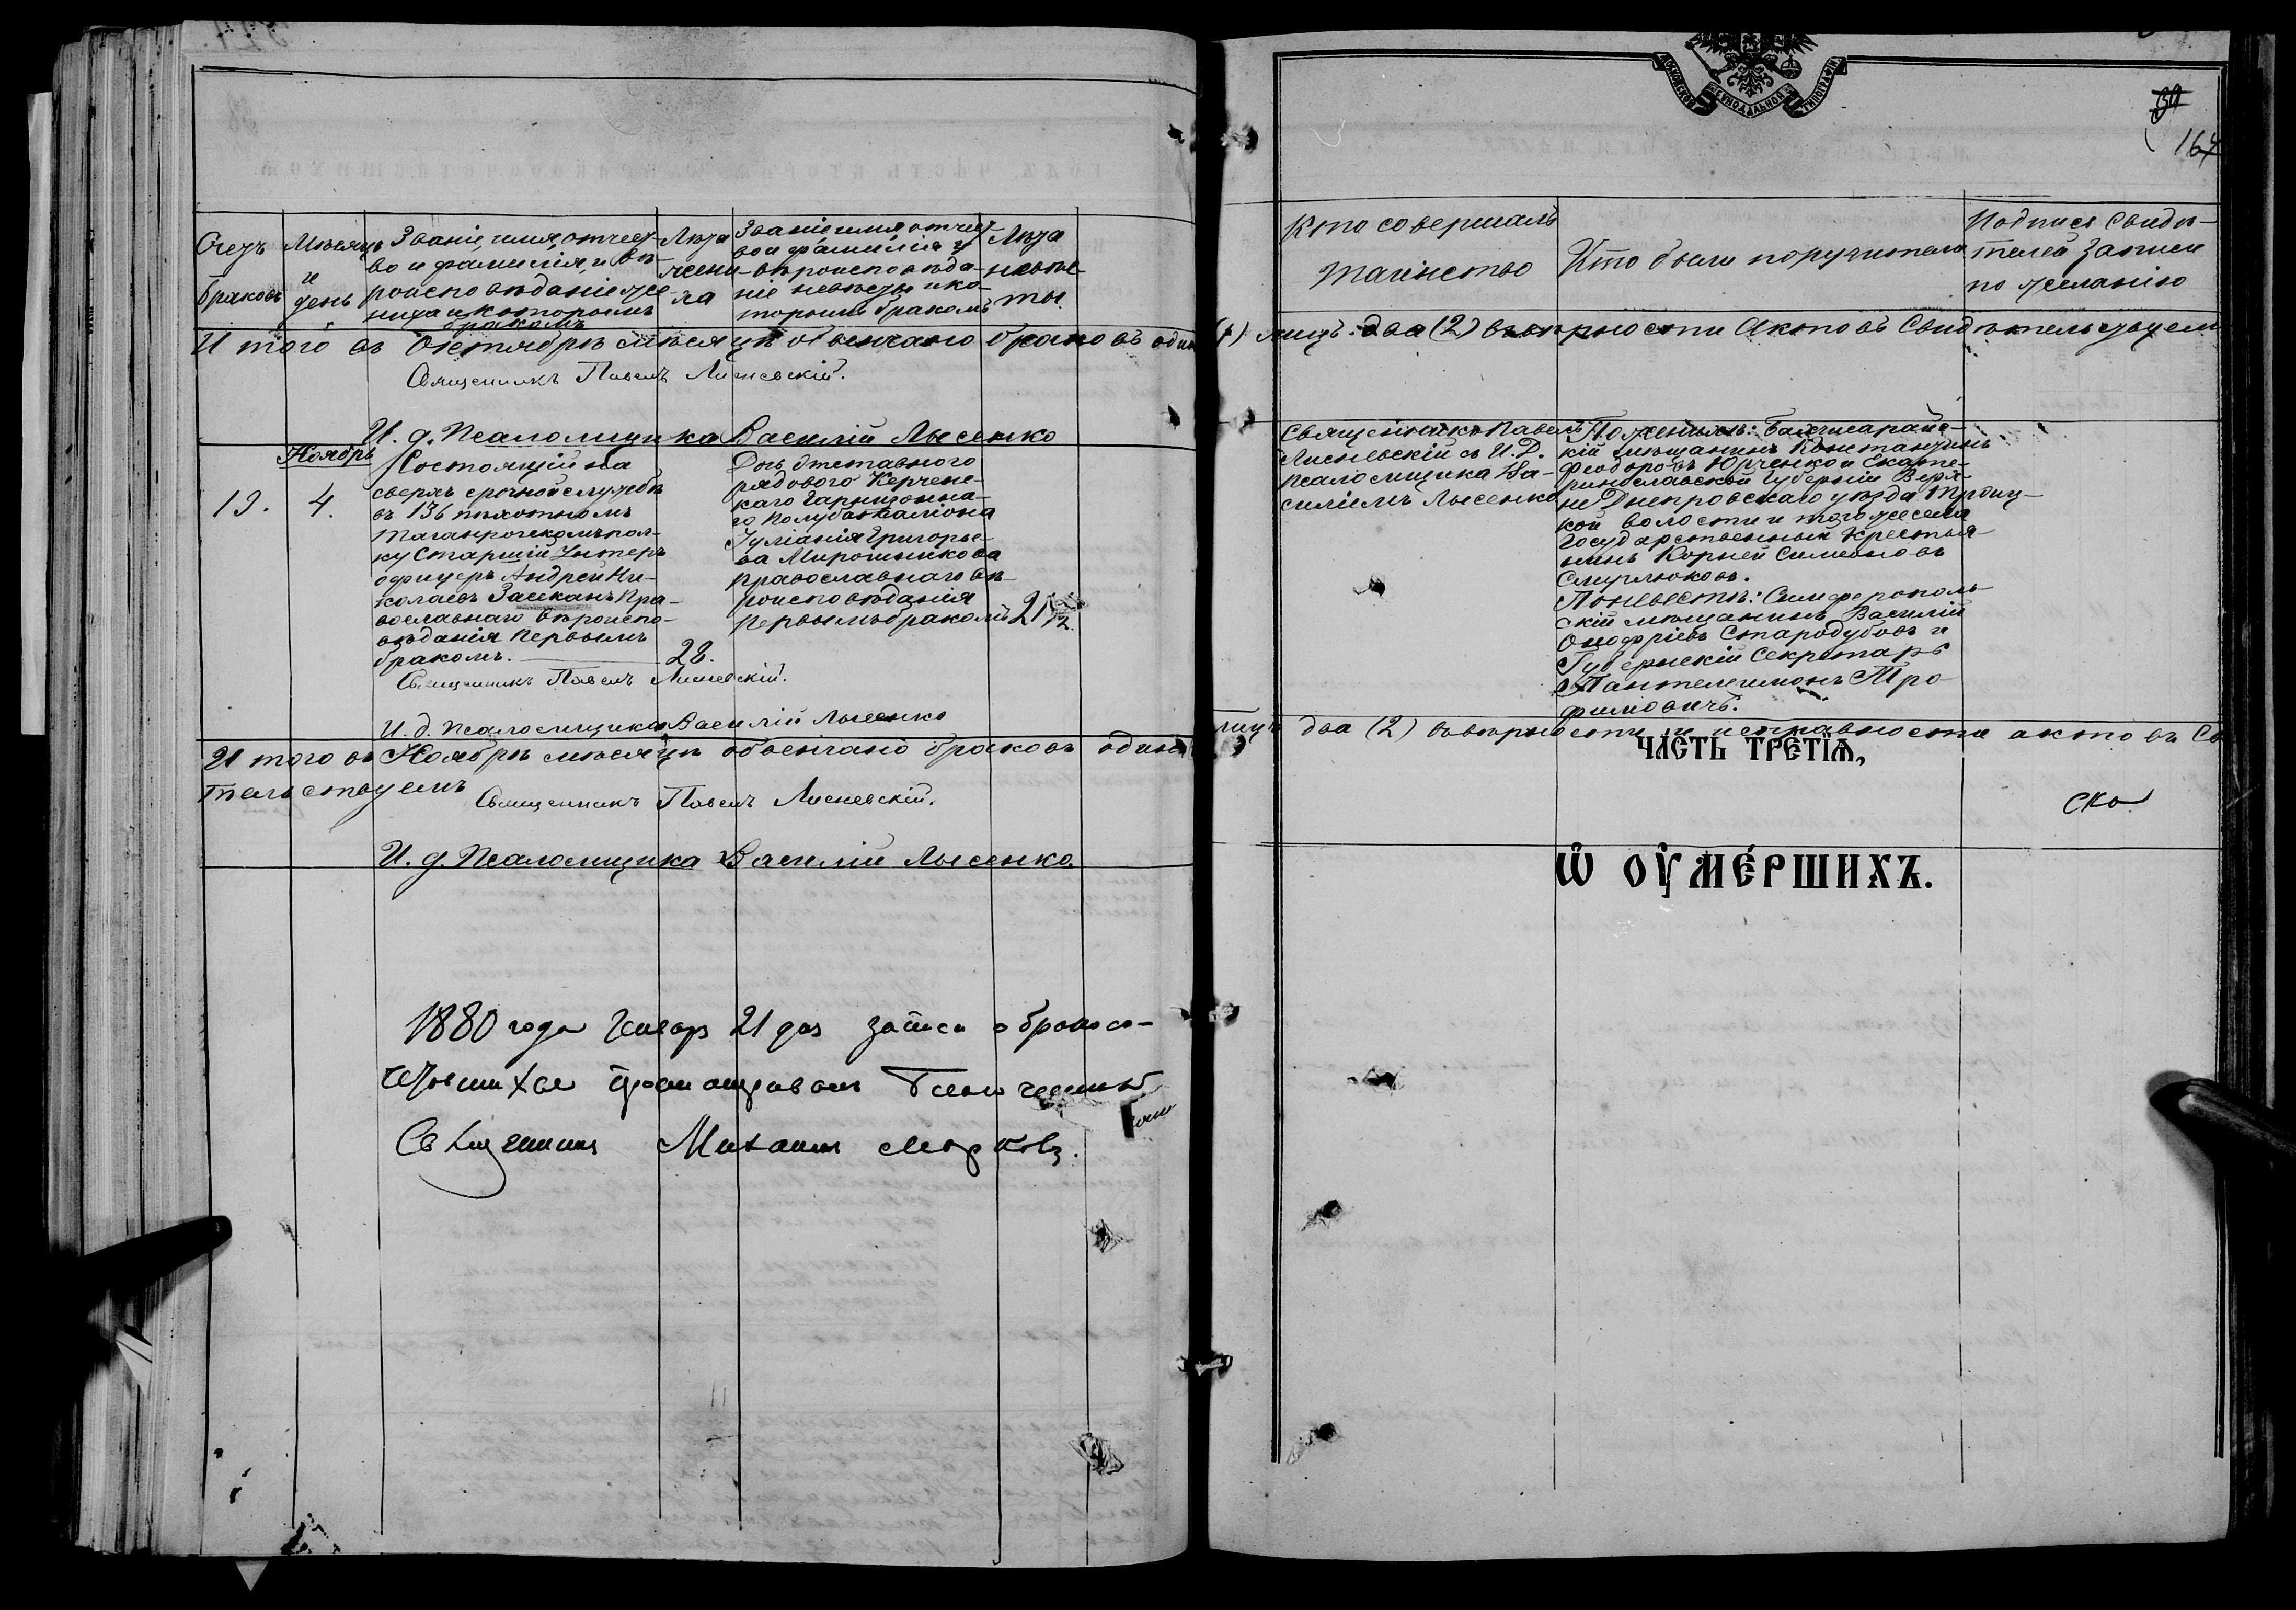 МОСКОВСКОЙ СѴНОДАЛЬНОЙ ТИПОГРАФІИ
167
Счетъ
браковъ
Мѣсяцъ
и
день
Званіе, имя, отчест-
во и фамилія, и вѣ-
роисповѣданіе же-
ниха и которымъ
бракомъ
Лѣта
жени-
ха
Званіе имя отчест-
во и фамилія и
вѣроисповѣда-
ніе невѣсты и ко-
торымъ бракомъ
Лѣта
невѣс-
ты
Кто совершалъ
таинство
Кто были поручители
Подпись свидѣ-
телей записи
по желанію
Итого въ Октябрѣ мѣсяцѣ обвенчано браковъ одинъ (1) лицъ два (2) въ вѣрности актовъ свидѣтельствуемъ
Священникъ Павелъ Лисневскій.
И. д. Псаломщика Василій Лысенко
Ноябрь
13.
4.
Состоящій на
сверхъ срочной службѣ
въ 136 пѣхотномъ
Таганрогскомъ пол-
ку Старшій Унтеръ
офицеръ Андрей Ни-
колаевъ Заикинъ Пра-
вославнаго вѣроиспо-
вѣданія первымъ
бракомъ.
28.
Дочь отставного
рядового Керченс-
каго Гарнизонна-
го полубаталіона
Іуліанія Григорье-
ва Мирошникова
православнаго вѣ-
роисповѣданія
первымъ бракомъ
21
Священникъ Павелъ
Лисневскій съ И. Д.
псаломщика Ва-
силіемъ Лысенко
По женихѣ: Бахчисарайс-
кій мѣщанинъ Константинъ
Феодоровъ Юрченко и Екате-
ринославской Губерніи Верх-
не Днепровскаго уѣзда Троиц-
кой волости и того же села
Государственный Крестья-
нинъ Корней Симеоновъ
По невѣстѣ: Симферополь-
скій мѣщанинъ Василій
Онофріевъ Стародубовъ и
Губернскій Секретарь
Пантелеимонъ Тро
фимовичъ.
Священникъ Павелъ Лисневскій.
И. д. псаломщика Василій Лысенко
Итого въ Ноябрѣ мѣсяцѣ обвенчано браковъ одинъ лицъ два (2) въ вѣрности и исправности актовъ Св
тельствуемъ
Священникъ Павелъ Лисневскій.
И. д. Псаломщика Василій Лысенко.
ЧАСТЬ ТРЕТІѦ,
Ѡ ОУМЕРШИХЪ.
1880 года Январ 21 дня записи о бракосо-
четавшихся Благочинный
Священникъ Михаилъ Марковъ.